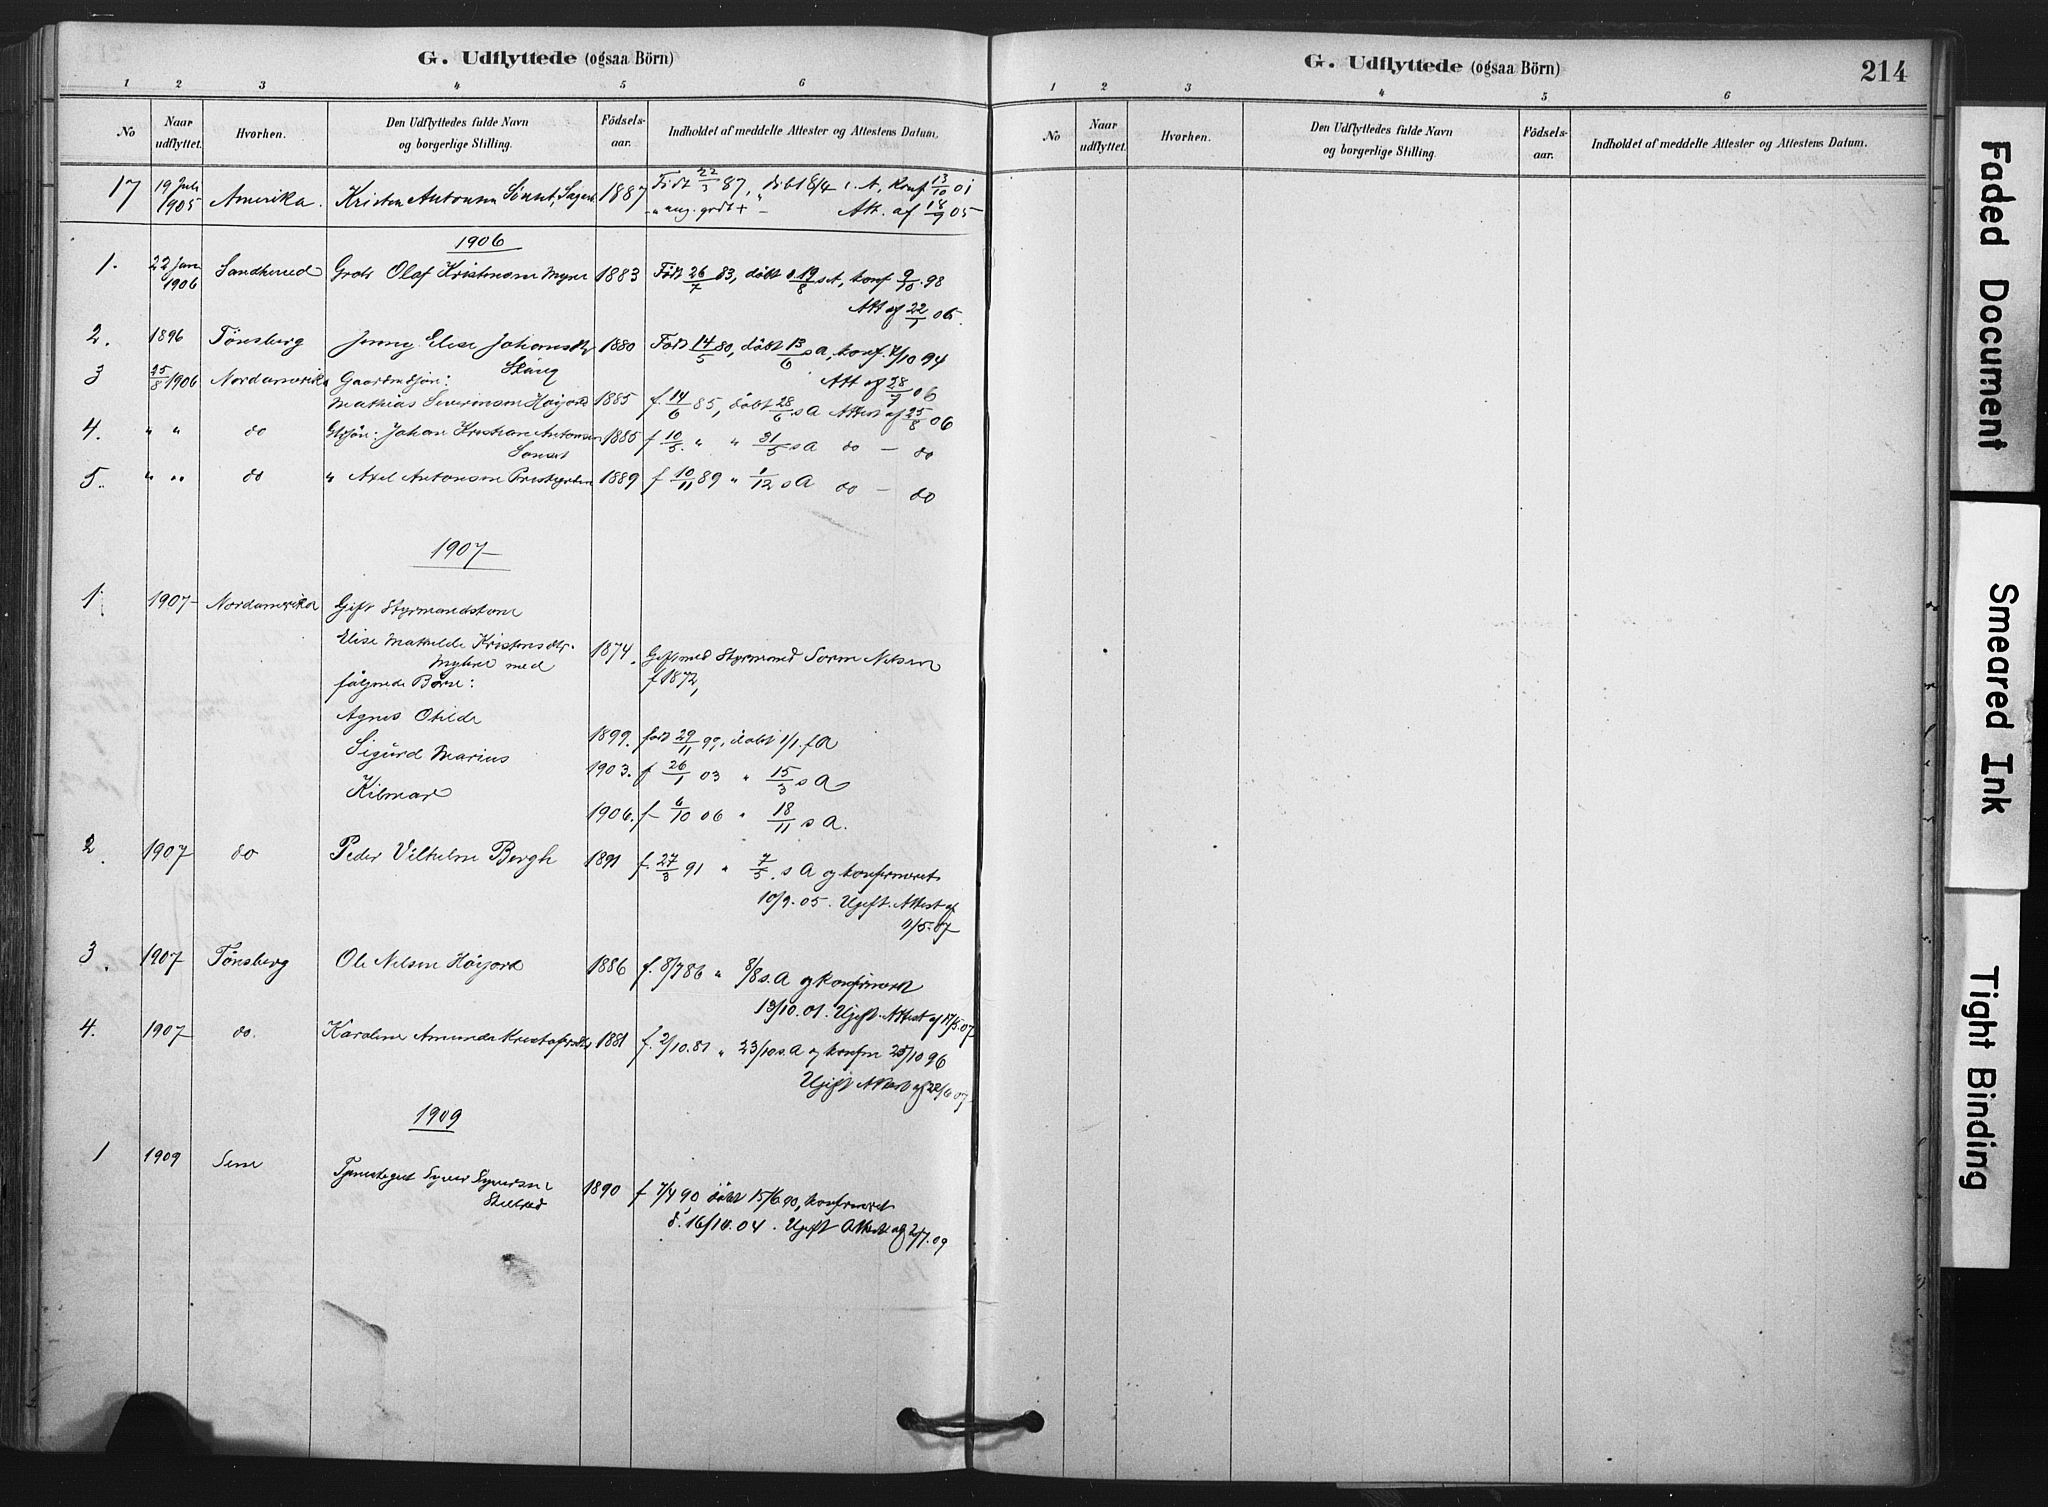 G. Udflyttede (ogsaa Börn)
1 2 3 4 5 6
No Naar udflyttet. Hvorhen. Den Udflyttedes fulde Navn og borgerlige Stilling. Födsels-aar. Indholdet af meddelte Attester og Attestens Datum.
17 19 Juli 1905 Amerika. Kristen Antonsen 1887 Födt 22/3 87, döbt 8/4 s. A, konf 13/10 01
Att. af 18/7 05
1906
1. 22 Jan 1906 Sandherred Olaf Kristensen Myre 1883 Född 26/7 83, döbt 19/8 s A, konf 9/10 98
Att af 22/1 06.
2. 1896 Tönsberg Jenny Elise Johansdtr 1880 Född 14/5 80, döbt 13/6 s a, konf. 7/10 94
Att af 28/7 06
3 25/8 1906 Nordamerika Gaardmdsön:
Mathias Severinsen Höijord 1885 f. 14/6 85, döbt 28/6 s A Attest af 25/8 06
4. " " do Johan Kristian Antonsen 1885 f 10/5 " " 31/5 s A do — do
5. " " do " Axel Antonsen 1889 f 10/11 89 " 1/12 s A do — do
1907
1. 1907 Nordamerika Gift Styrmandskone
Elise Mathilde Kristensdtr. 1874. Gift med Styrmand Sören Nelsen
Myhre med f 1872,
fölgende Börn:
Agnes Otilde 1899. född 29/11 99, döbt 1/1. f A
Sigurd Marius 1903. f 26/1 03 " 15/3 s A
Hilmar 1906. f 6/10 06 " 18/11 s A.
2. 1907 do Peder Vilhelm Bergh 1891 f. 27/3 91 " 7/5. s A og konfirmeret
10/9. 05. Ugift. Attest af
11/5. 07
3. 1907 Tönsberg Ole Nelsen Höijord 1886 f. 8/7 86 " 8/8 s. A og konfirmeret
13/10. 01. Ugift. Attest af 17/5. 07
4. 1907 do. Karoline Amunda Kristofersdtr 1881 f. 2/10. 81 " 23/10 s. A og konfirm 25/10 96
Ugift Attest af 22/6 07
1909
1 1909 Sem Syver Syversen 1890 f 7/4 90 döbt 15/6. 90, konfirmeret
d. 16/10. 04. Ugift Attest af 2/7. 09
G. Udflyttede (ogsaa Börn) 214
1 2 3 4 5 6
No Naar udflyttet. Hvorhen. Den Udflyttedes fulde Navn og borgerlige Stilling. Födsels-aar. Indholdet af meddelte Attester og Attestens Datum.
Faded Document
Smeared Ink
Tight Binding